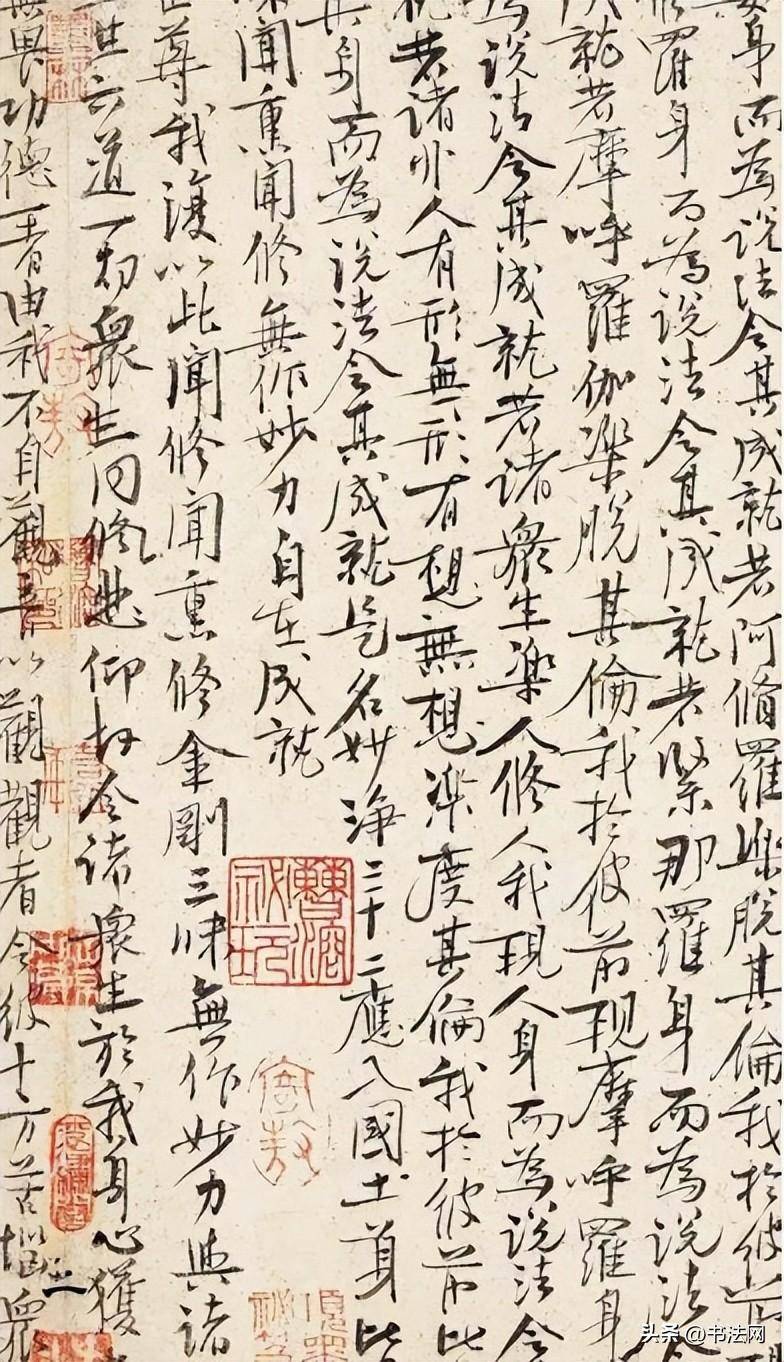 身而為說法令其成就若阿脩羅樂脫其倫我於彼前
脩羅身而為說法令其成就若緊那羅身而為說法令
成就若摩呼羅伽樂脫其倫我於彼前現摩呼羅身
為說法令其成就若諸衆生樂人修人我現人身而為說法令
就若諸非人有形無形有想無想樂度其倫我於彼前
其身而為說法令其成就是名妙淨三十二應入國土身此
聞熏聞修無作妙力自在成就
世尊我復以此聞修聞熏修金剛三昧無作妙力與諸
世六道一切衆生同悲仰故令諸衆生於我身心獲
無畏功德一者由我不自觀音以觀觀者令彼十方苦惱衆
頭条 @书法网